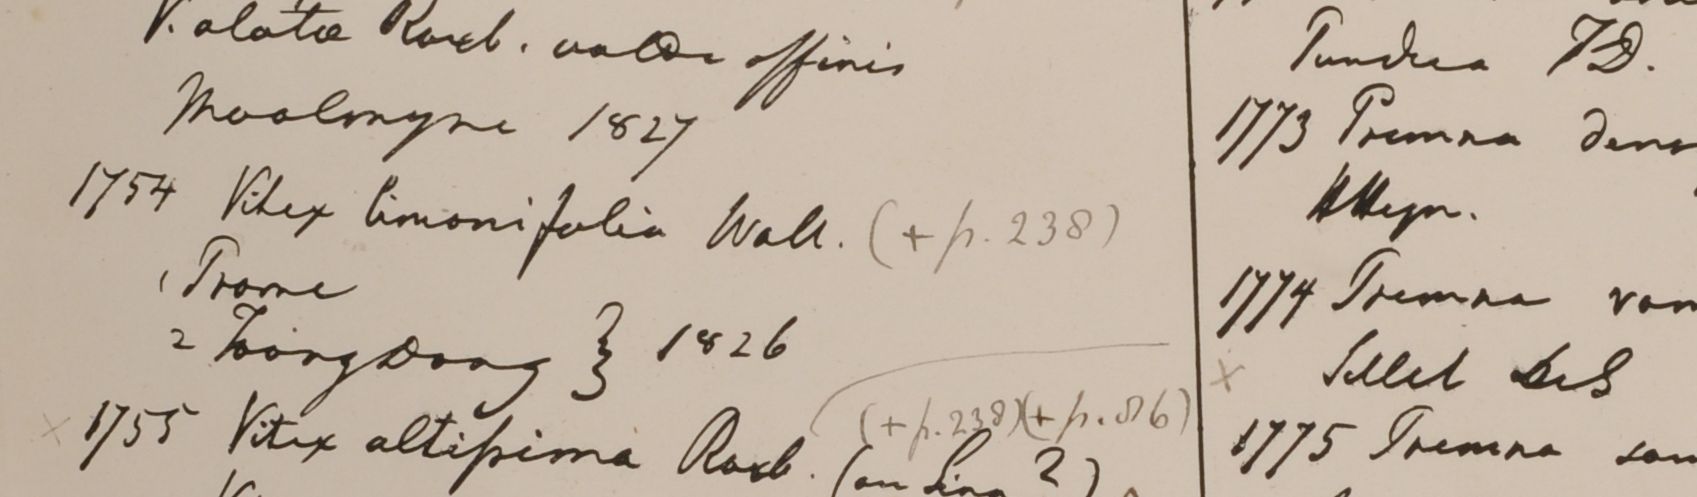 V. alata Roxb. valde affinis
Moolmyne 1827
1754 Vitex limonifolia Wall. (+ p. 238)
1 Prome
2 Toong Dong } 1826
(+ p. 238) (+ p. 86)
1755 Vitex altissima Roxb. (an Linn ?)
Pundua FD.
1773 Premna
HHeyn.
1774 Premna
Sillet
1775 Premna